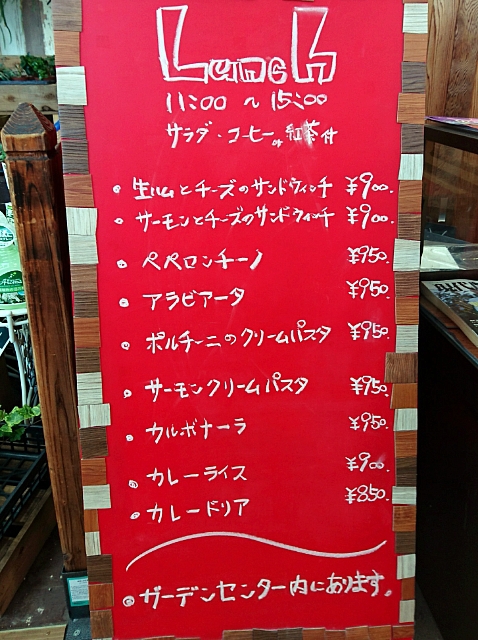 Lunch
11:00 ~ 15:00
サラダ・コーヒー or 紅茶付
・生ハムとチーズのサンドウィッチ ¥900.
・サーモンとチーズのサンドウィッチ ¥900.
・ペペロンチーノ ¥950.
・アラビアータ ¥950.
・ポルチーニのクリームパスタ ¥950.
・サーモンクリームパスタ ¥950.
・カルボナーラ ¥950.
・カレーライス ¥900.
・カレードリア ¥850.
◎ガーデンセンター内にあります。